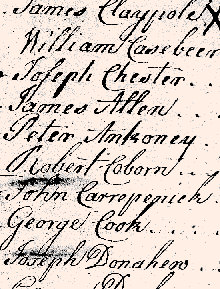 James Claypole
William Casebeer
Joseph Chester
James Allen
Peter Ankoney
Robert Coborn
John Carrepenick
George Cook
Joseph Donahew